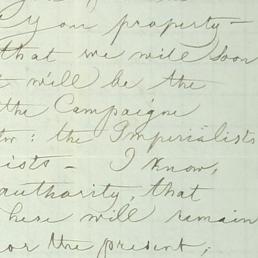 our property—
that we will soon
will be the
the Campaigne
: the Imperialists
ists — I know,
authority, that
these will remain
for the present;